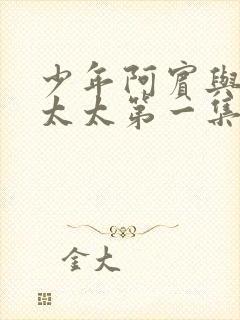 少年阿賓與
太太第一集
金大